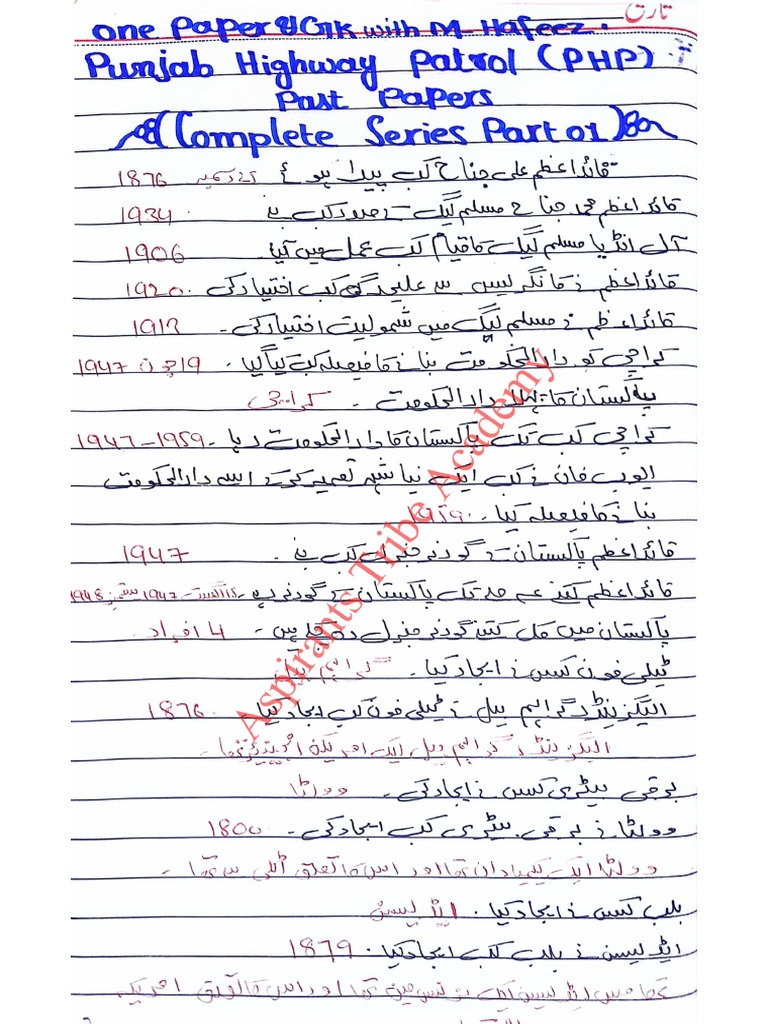 تاریخ
One Paper GK with M-Hafeez.
Punjab Highway Patrol (PHP)
Past Papers
(Complete Series Part 01)
قائداعظم علی جناح کب پیدا ہوئے 25 دسمبر 1876
قائداعظم محمد جناح مسلم لیگ کے صدر کب بنے 1934
آل انڈیا مسلم لیگ کا قیام کب عمل میں آیا 1906
قائداعظم نے کانگریس سے علیحدگی کب اختیار کی 1920
قائداعظم نے مسلم لیگ میں شمولیت اختیار کی - 1913
کراچی کو دارالحکومت بنانے کا فیصلہ کب کیا گیا . 19 جون 1947
پاکستان کا پہلا دارالحکومت - کراچی
کراچی کب تک پاکستان کا دارالحکومت رہا - 1947-1959
ایوب خان نے کب ایک نیا شہر تعمیر کر کے اسے دارالحکومت
بنانے کا فیصلہ کیا - 1959
قائداعظم پاکستان کے گورنر جنرل کب بنے - 1947
قائداعظم کتنے عرصہ تک پاکستان کے گورنر رہے - 15 اگست 1947 ستمبر 1948
پاکستان میں کل کتنے گورنر جنرل رہ چکے ہیں - 4 افراد
ٹیلی فون کس نے ایجاد کیا - گراہم بیل
الیگزینڈر گراہم بیل نے ٹیلی فون کب ایجاد کیا - 1876
الیگزینڈر گراہم بیل ایک امریکن انجینئر تھا -
برقی بیٹری کس نے ایجاد کی - وولٹا
وولٹا نے برقی بیٹری کب ایجاد کی - 1800
وولٹا ایک کیمیادان تھا اور اس کا تعلق اٹلی سے تھا -
بلب کس نے ایجاد کیا . ایڈیسن
ایڈیسن نے بلب کب ایجاد کیا . 1879
تھامس ایڈیسن ایک بزنس مین تھا اور اس کا تعلق امریکہ
Aspirants Tribe Academy